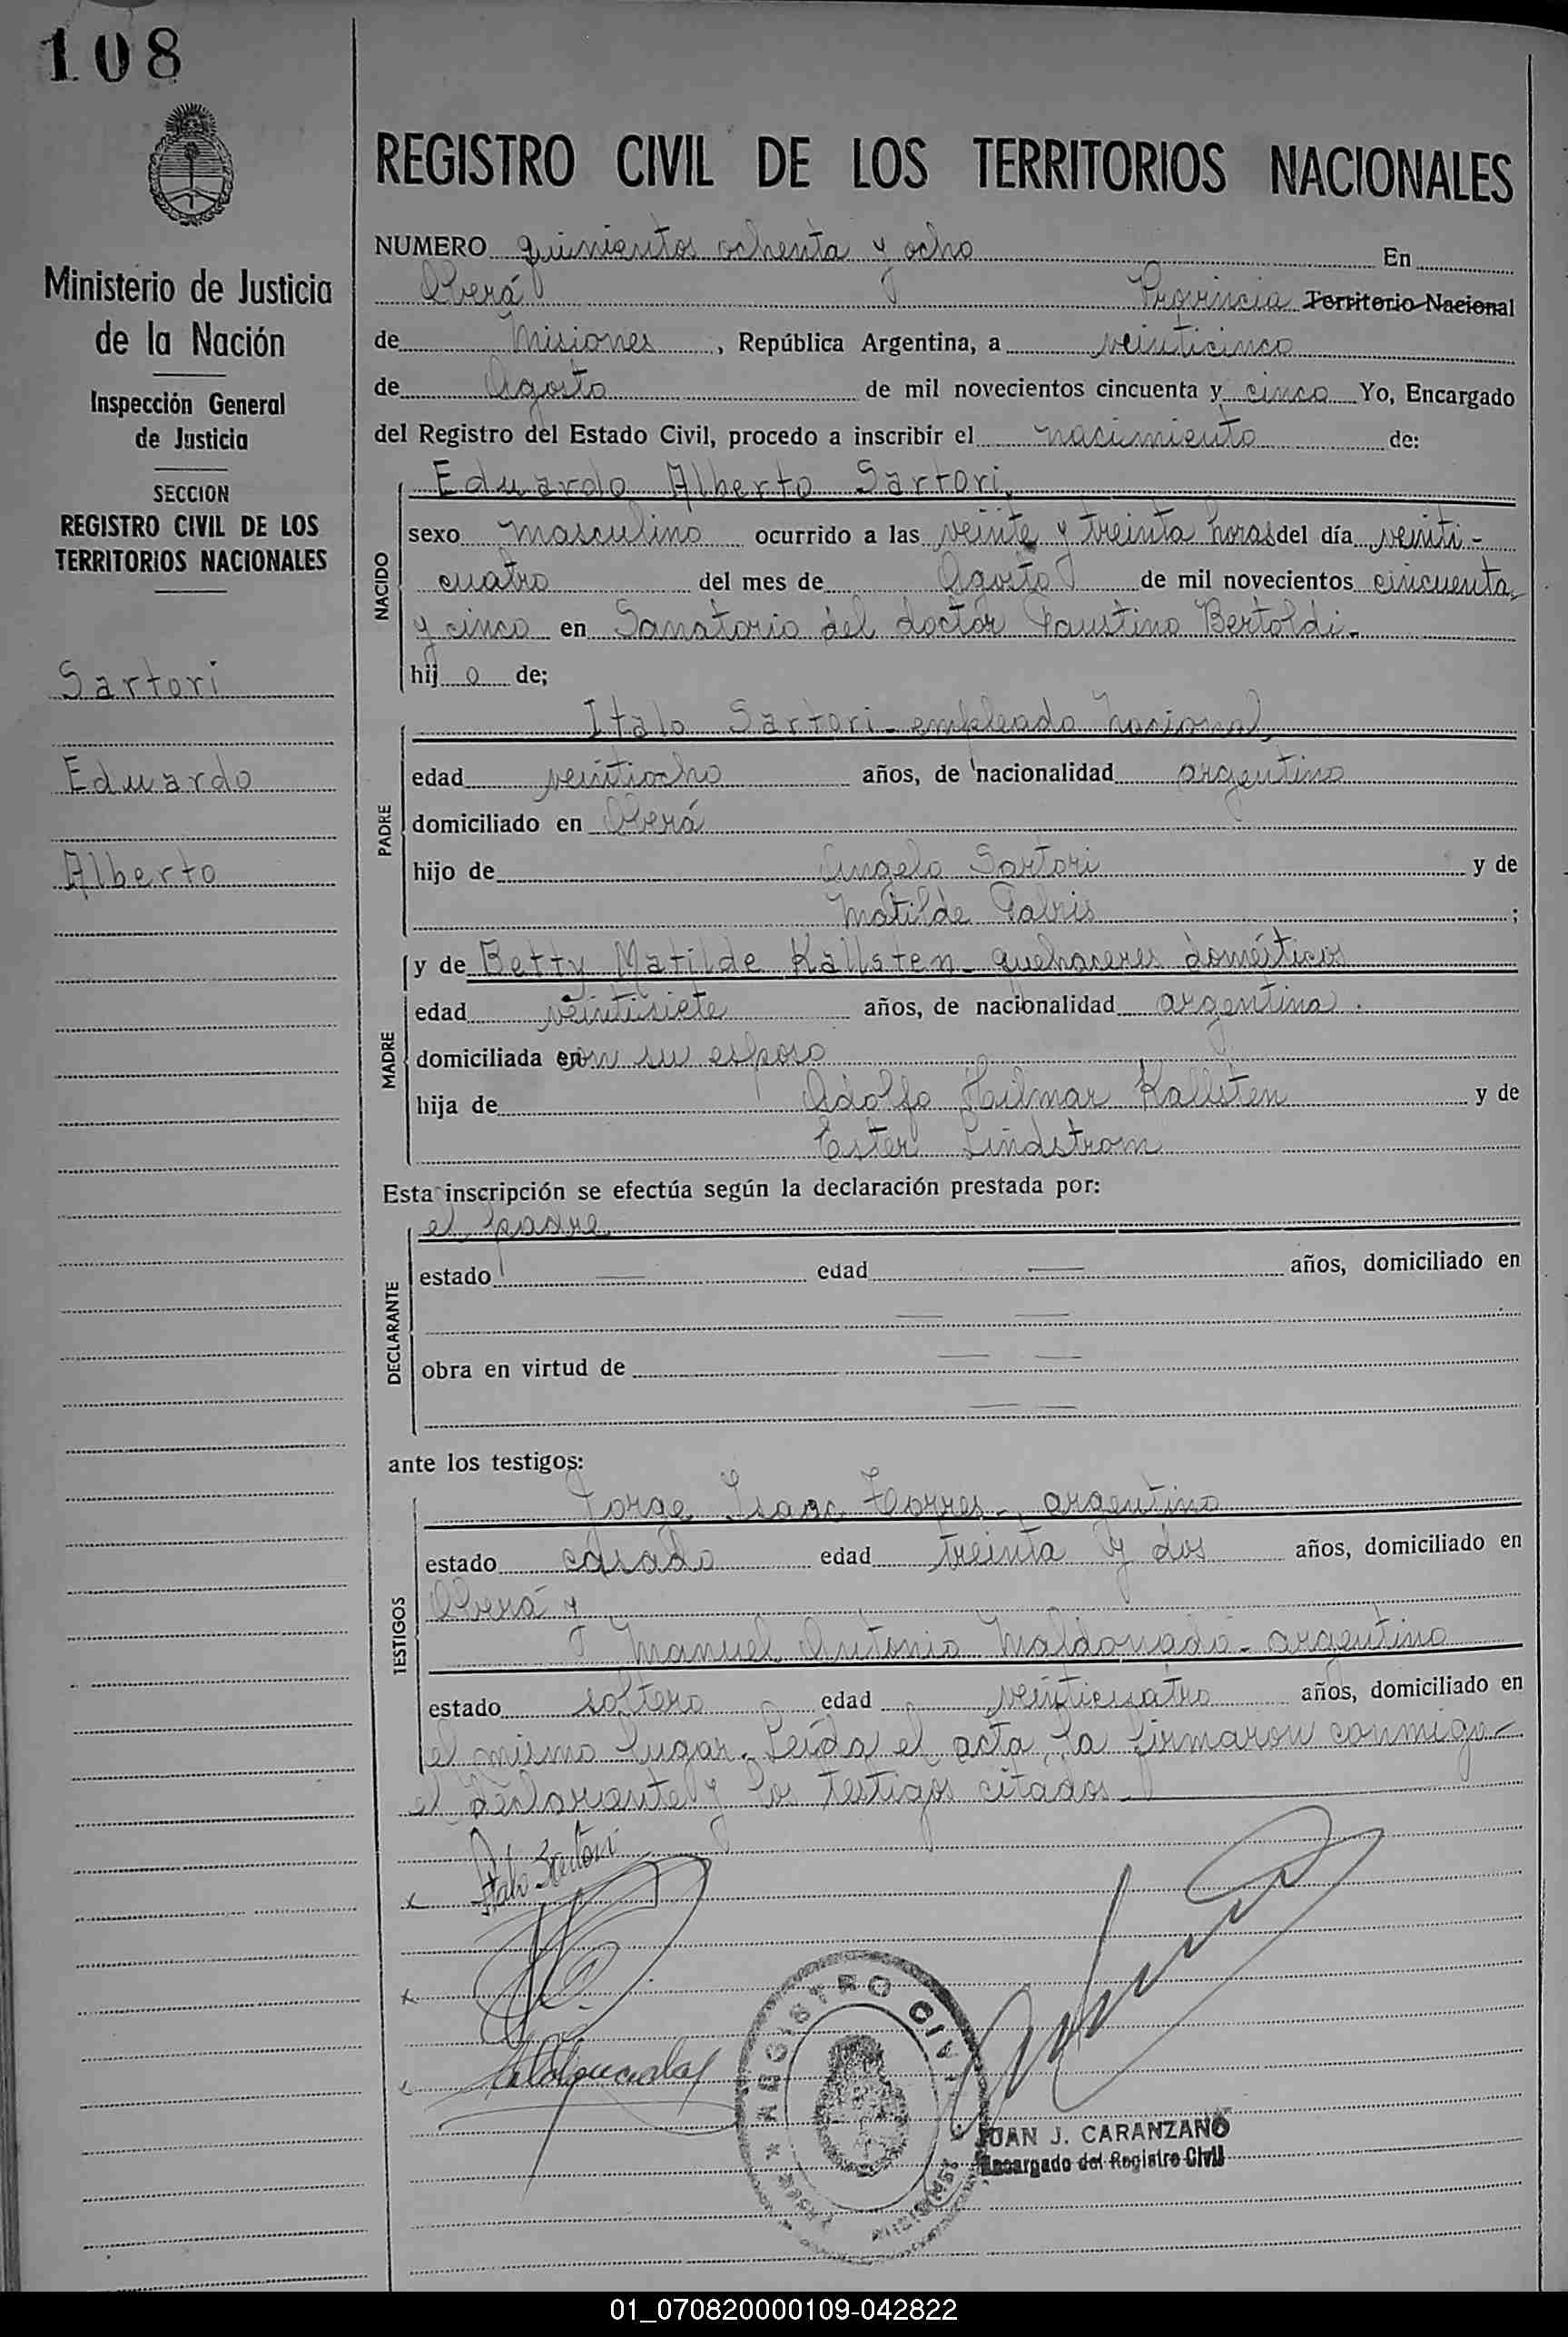 108
Ministerio de Justicia
de la Nación
Inspección General
de Justicia
SECCION
REGISTRO CIVIL DE LOS
TERRITORIOS NACIONALES
Sartori
Eduardo
Alberto
REGISTRO CIVIL DE LOS TERRITORIOS NACIONALES
NUMERO quinientos ochenta y ocho En
Oberá Provincia Territorio Nacional
de Misiones, República Argentina, a veinticinco
de Agosto de mil novecientos cincuenta y cinco Yo, Encargado
del Registro del Estado Civil, procedo a inscribir el nacimiento de:
NACIDO
Eduardo Alberto Sartori,
sexo masculino ocurrido a las veinte y treinta horas del día veinti-
cuatro del mes de Agosto de mil novecientos cincuenta
y cinco en Sanatorio del doctor Faustino Bertoldi-
hij o de;
PADRE
Italo Sartori - empleado nacional,
edad veintiocho años, de nacionalidad argentino
domiciliado en Oberá
hijo de Angelo Sartori y de
Matilde Fabris ;
MADRE
y de Betty Matilde Kallsten - quehaceres domésticos
edad veintisiete años, de nacionalidad argentina.
domiciliada en con su esposo
hija de Adolfo Hilmar Kallsten y de
Ester Lindstrom
Esta inscripción se efectúa según la declaración prestada por:
DECLARANTE
el padre
estado — edad — años, domiciliado en
— —
obra en virtud de — —
— —
ante los testigos:
TESTIGOS
Jorge Isaac Torres - argentino
estado casado edad treinta y dos años, domiciliado en
Oberá y
Manuel Antonio Maldonado - argentino
estado soltero edad veinticuatro años, domiciliado en
el mismo lugar. Leída el acta, la firmaron conmigo-
el declarante y los testigos citados.-
x Italo Sartori
x
x
REGISTRO CIVIL
JUAN J. CARANZANO
Encargado del Registro Civil
01_070820000109-042822